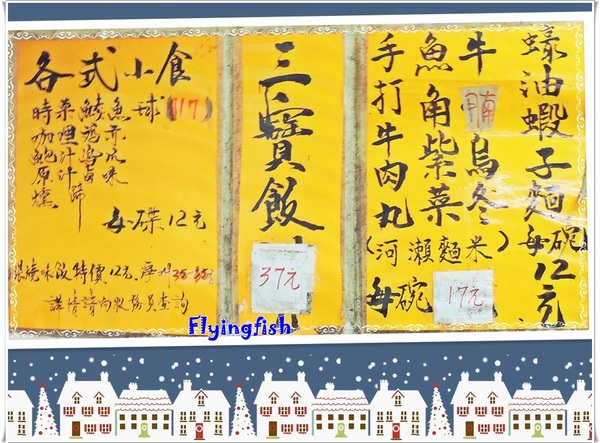 各式小食
時菜鯪魚球(17)
咖哩
鮑汁
原汁
每碟12元
燒味飯特價12元
詳情請向服務員查詢
三寶飯
37元
蠔油蝦子麵每碗12元
牛腩烏冬
魚角紫菜
手打牛肉丸
(河瀨麵米)
每碗17元
Flyingfish